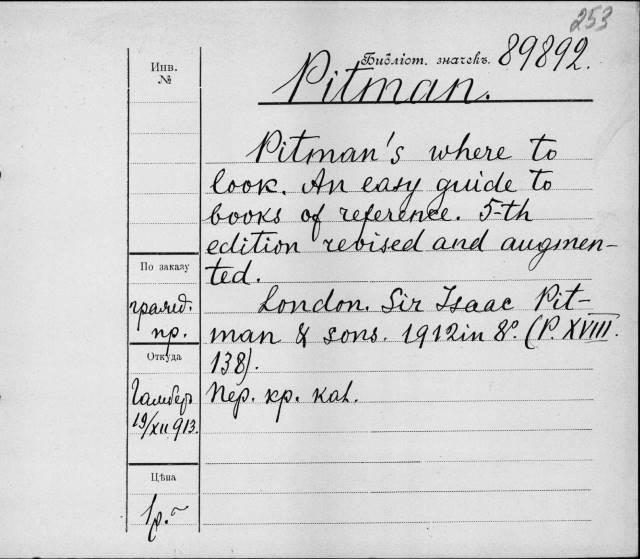 253
Библіот. значекъ. 89892.
Pitman.
Инв.
№
Pitman's where to
look. An easy guide to
books of reference. 5-th
edition revised and augmen-
ted.
London. Sir Isaac Pit-
man & sons. 1912 in 8°. (P. XVIII.
138).
Пер. кр. кат.
По заказу
гражд.
пр.
Откуда
19/XII 913.
Цѣна
1р.~